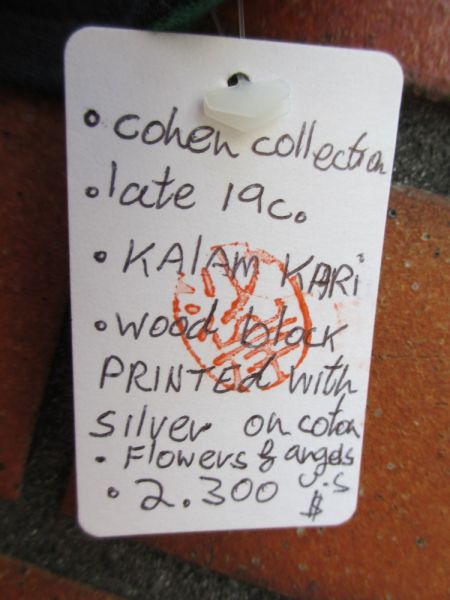 • cohen collection
• late 19c.
• KAlAM KARi
• wood block
PRINTED with
Silver on coton
• Flowers & angels
• 2.300 U.S
$